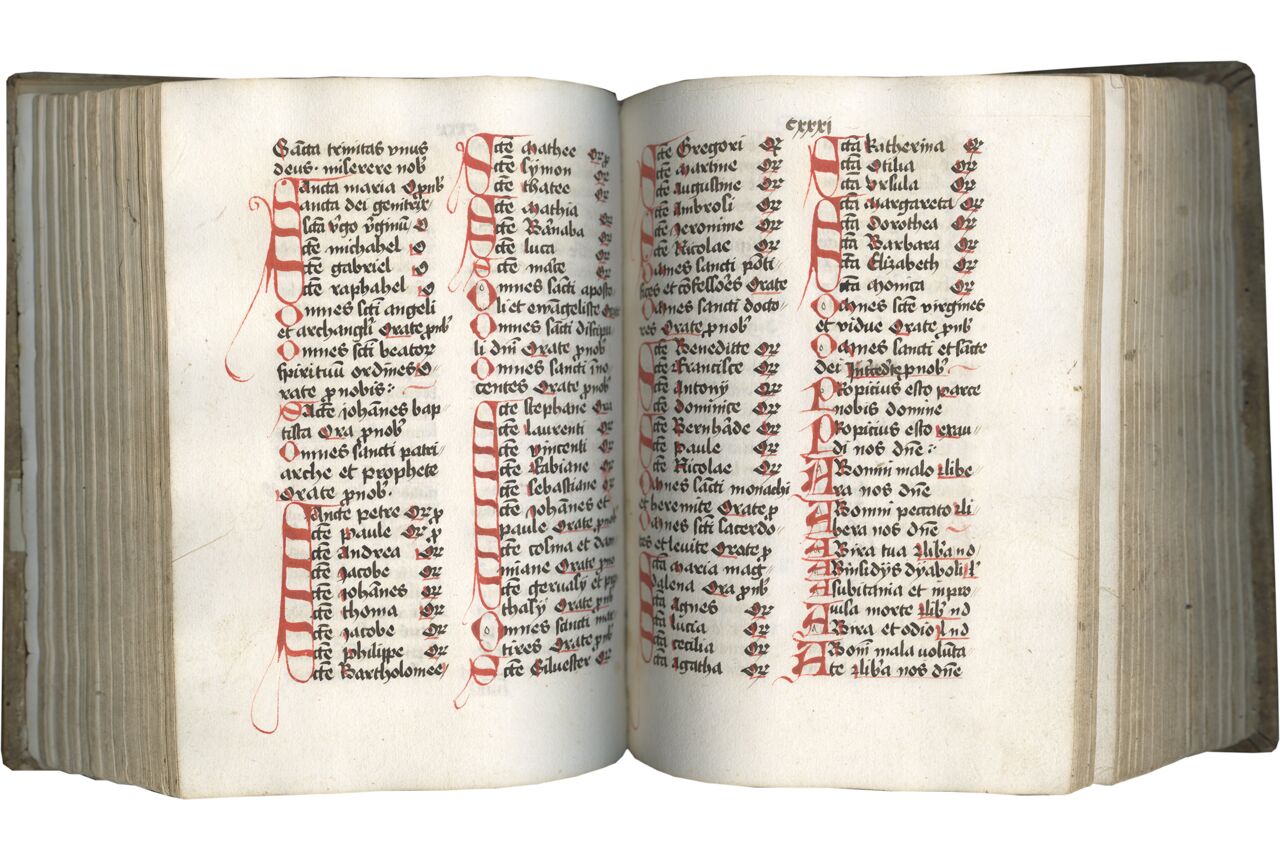 Sācta trinitas vnus
deus· miserere nob
Sancta maria Or pnb
Sancta dei genitrix
Sctā v̓go v̓ginū O
Sctē michahel O
Sctē gabriel O
Sctē raphahel O
Omnes scti angeli
et archangli Orate pnb
Omnes scti beator
spirituū ordines O
rate p nobis:
Sācte Johānes bap
tista Ora p nob
Omnes sancti patri
arche et prophete
Orate p nob·
Sancte petre Or p
Sctē paule Or p
Sctē Andrea Or
Sctē Jacobe Or
Sctē Johānes Or
Sctē thoma Or
Sctē Jacobe Or
Sctē philippe Or
Sctē Bartholomee
Sctē Mathee Or p
Sctē symon Or
Sctē thatee Or
Sctē Mathia Or
Sctē Barnaba Or
Sctē luca Or
Sctē marce Or
Omnes sācti aposto
li et ewangeliste Orate
Omnes sācti discipu
li dm̄ Orate p nob
Omnes sancti īno
centes Orate p nob
Sctē stephane Ora
Sctē laurenti Or
Sctē vincenti Or
Sctē fabiane Or
Sctē sebastiane Or
Sctē Johānes et
paule Orate p nob
Sctē cosma et dam
miane Orate p no
Sctē geruasy et pro
thasy Orate p nb
Omnes sancti mar
tires Orate p nb
Sctē Siluester Or
cxxxi
Sctē Gregori Or
Sctē Martine Or
Sctē Augustine Or
Sctē Ambrosi Or
Sctē Jeronime Or
Sctē Nicolae Or
Omnes sancti pōti
fices et cōfessores Orate
Omnes sancti docto
res Orate p nob
Sctē Benedicte Or
Sctē Francisce Or
Sctē Antony Or
Sctē dominice Or
Sctē Bernharde Or
Sctē paule Or
Sctē Nicolae Or
Omnes sācti monachi
et heremite Orate p
Omnes scti sacerdo
tes et leuite Orate p
Sctā Maria mag
dalena Ora p nb
Sctā Agnes Or
Sctā lucia Or
Sctā cecilia Or
Sctā Agatha Or
Sctā Katherina Or
Sctā Otilia Or
Sctā vrsula Or
Sctā Margareta Or
Sctā Dorothea Or
Sctā Barbara Or
Sctā Elizabeth Or
Sctā Monica Or
Omnes sctē virgines
et vidue Orate p nb
Omnes sancti et sancte
dei Intercedite p nob
Propicius esto parce
nobis domne
Propicius esto exau
di nos dn̄e:
A Bomni malo libe
ra nos dn̄e
A Bomni peccato li
bera nos dn̄e
A Bira tua libā no
A Binsidys dyaboli l
A subitania et inpro
uisa morte lib no
A Bira et odio l no
A Bom̄ mala volūta
te libā nos dn̄e